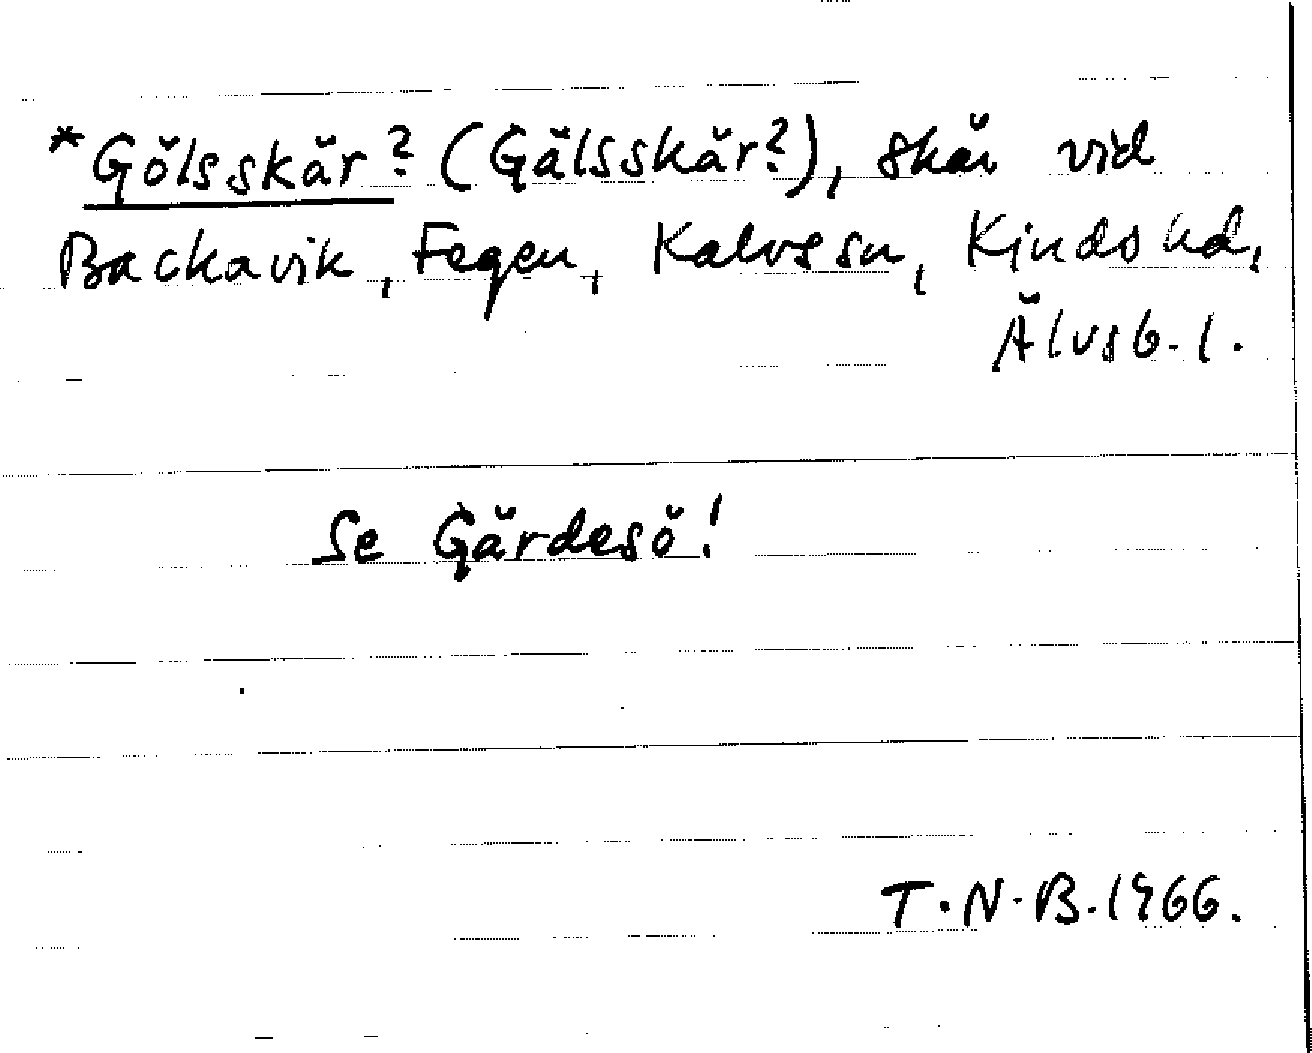 *Gölsskär? (Gälsskär?), skär vid
Backavik, Fegen, Kalvs sn, Kinds hd,
Älvsb. l.
Se Gärdesö!
T.N.B. 1966.